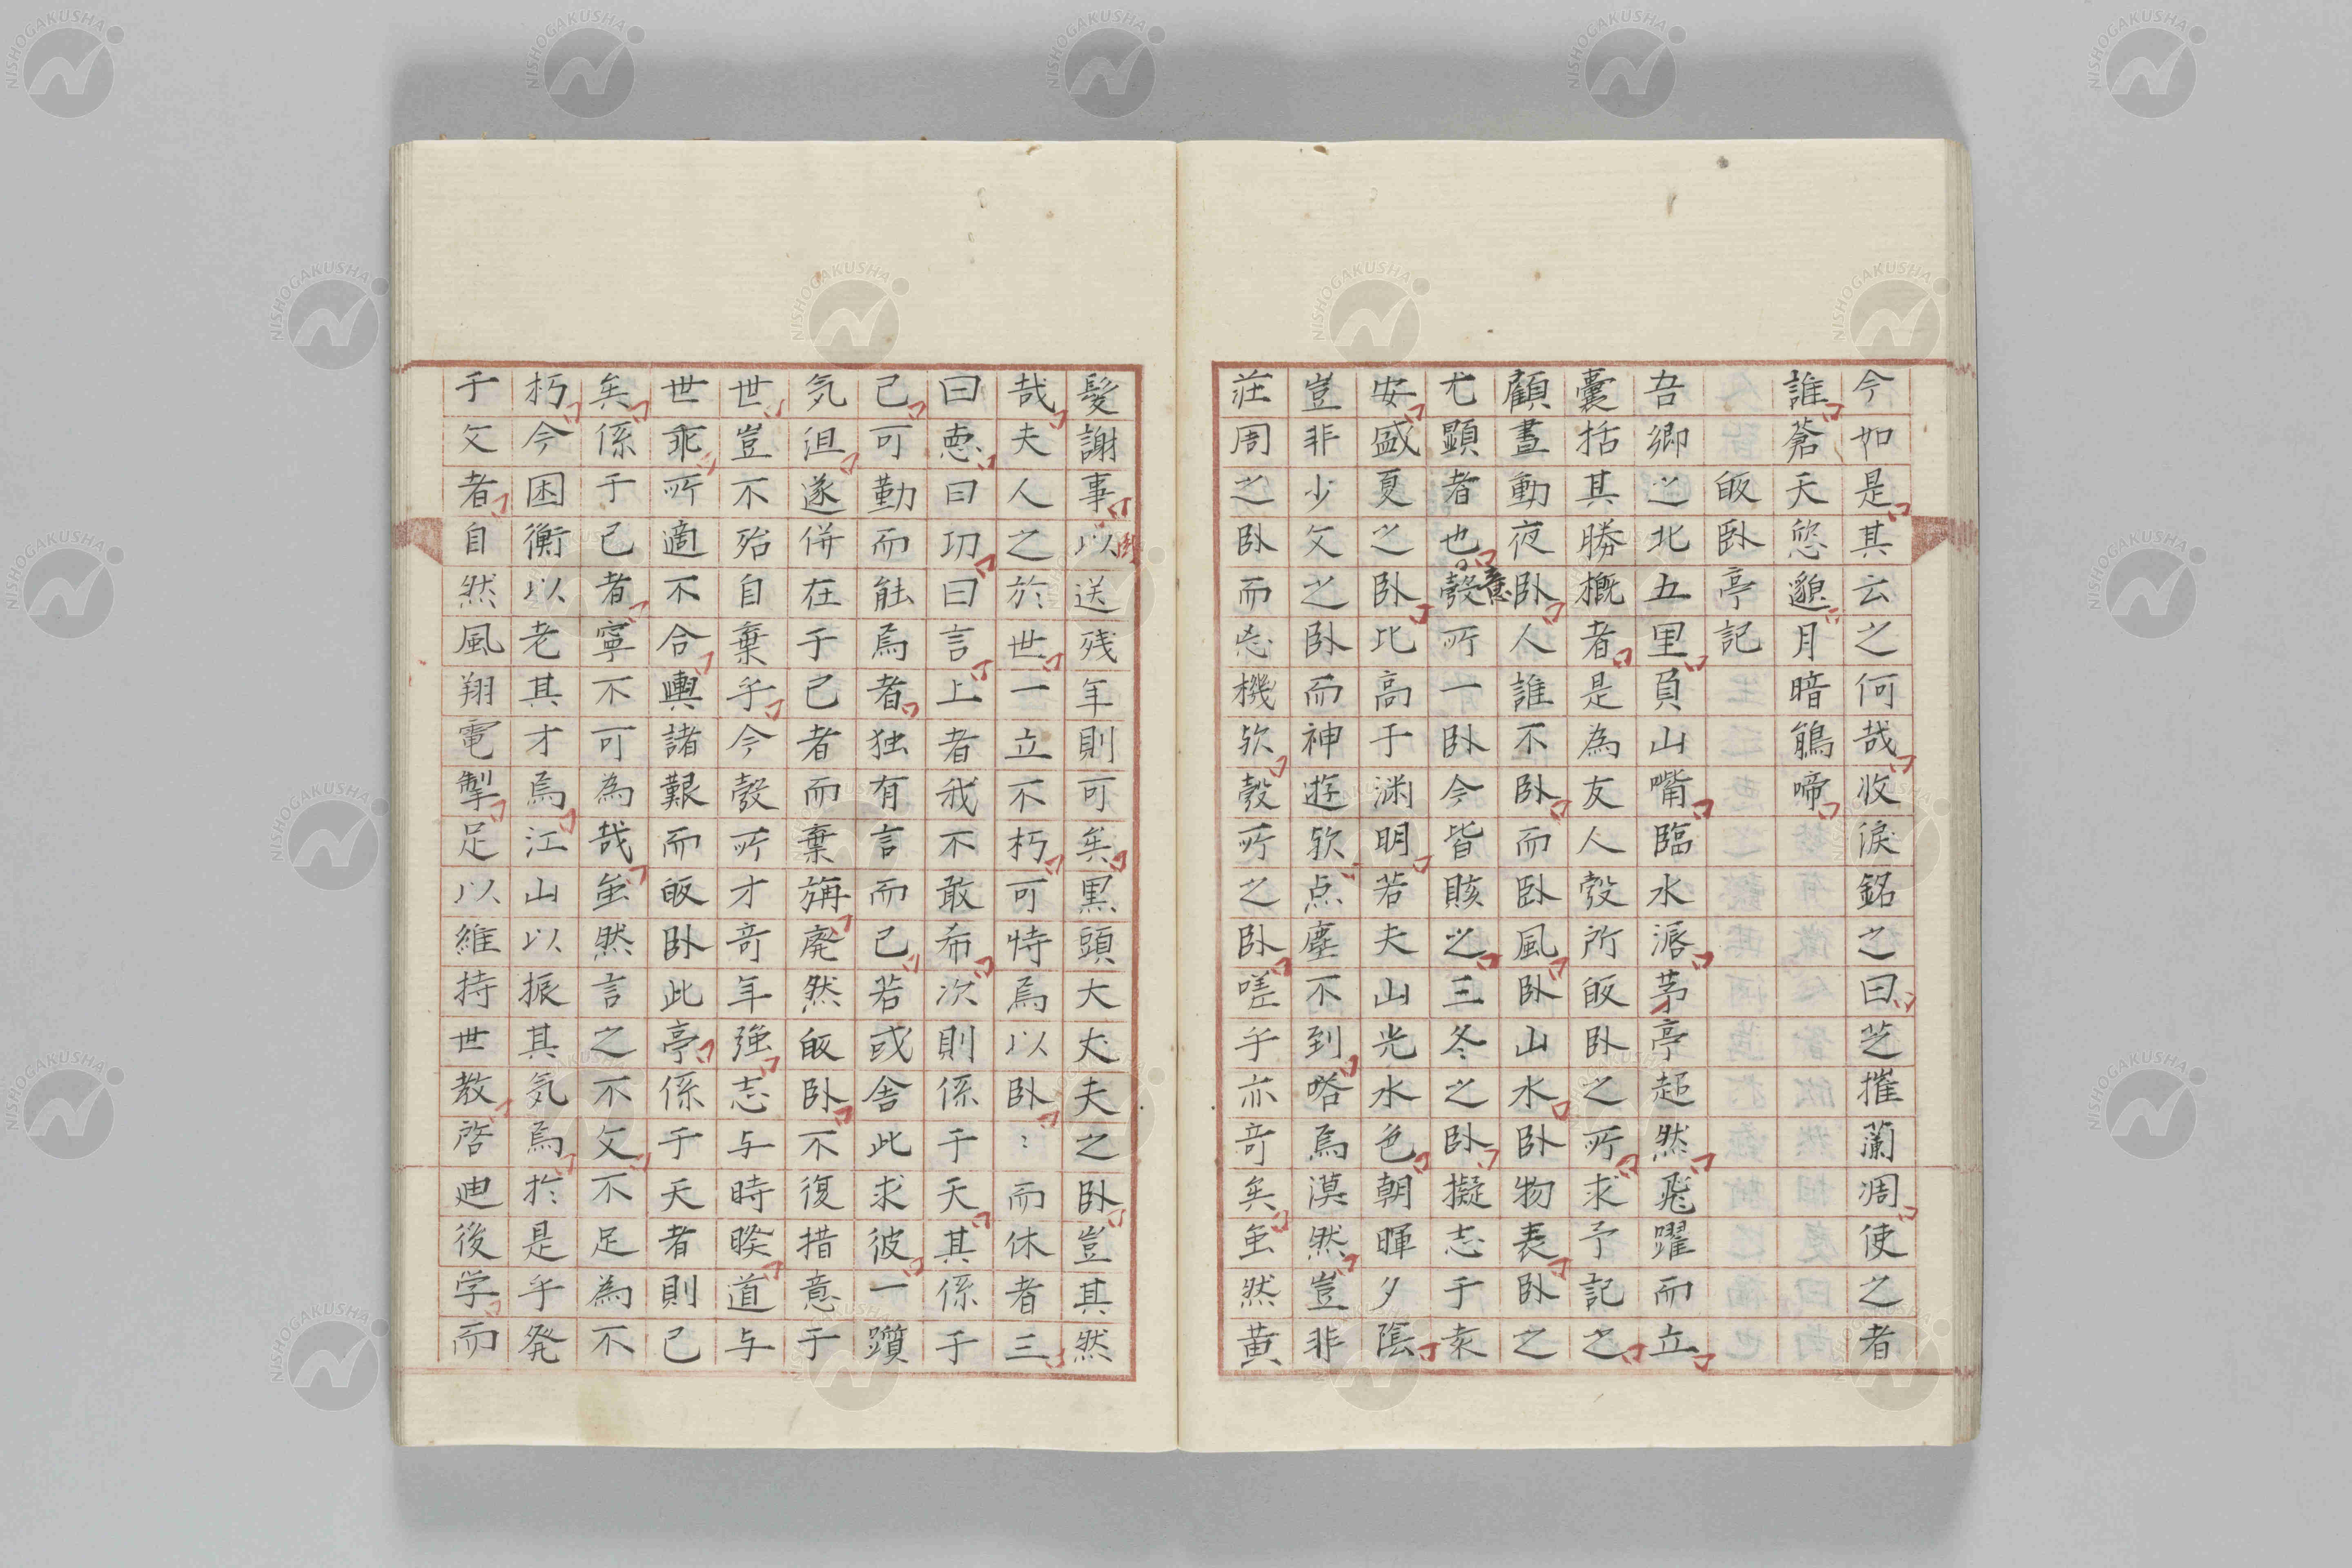 今如是其云之何哉收涙銘之曰芝摧蘭凋使之者
誰蒼天悠邈月暗鵑啼
皈臥亭記
吾郷之北五里負山嘴臨水漘茅亭超然飛躍而立
囊括其勝概者是為友人瑴所皈臥之所求予記之
顧晝動夜臥人誰不臥而臥風臥山水臥物表臥之
尤顕者也瑴意所一臥今皆賅之三冬之臥擬志于袁
安盛夏之臥比高于渊明若夫山光水色朝暉夕陰
豈非少文之臥而神遊欤点塵不到嗒焉漠然豈非
莊周之臥而忘機欤瑴所之臥嗟乎亦奇矣虽然黄
髪謝事以送残年則可矣黒頭大丈夫之臥豈其然
哉夫人之於世一立不朽可恃焉以臥〻而休者三
曰悳曰功曰言上者我不敢希次則係于天其係于
己可勤而能焉者独有言而已若或舍此求彼一躓
気沮遂併在于己者而棄旃廃然皈臥不復措意于
世豈不殆自棄乎今瑴所才奇年強志与時睽道与
世乖所適不合輿諸艱而皈臥此亭係于天者則已
矣係于己者寧不可為哉虽然言之不文不足為不
朽今困衡以老其才焉江山以振其気焉於是乎発
于文者自然風翔電掣足以維持世教啓迪後学而